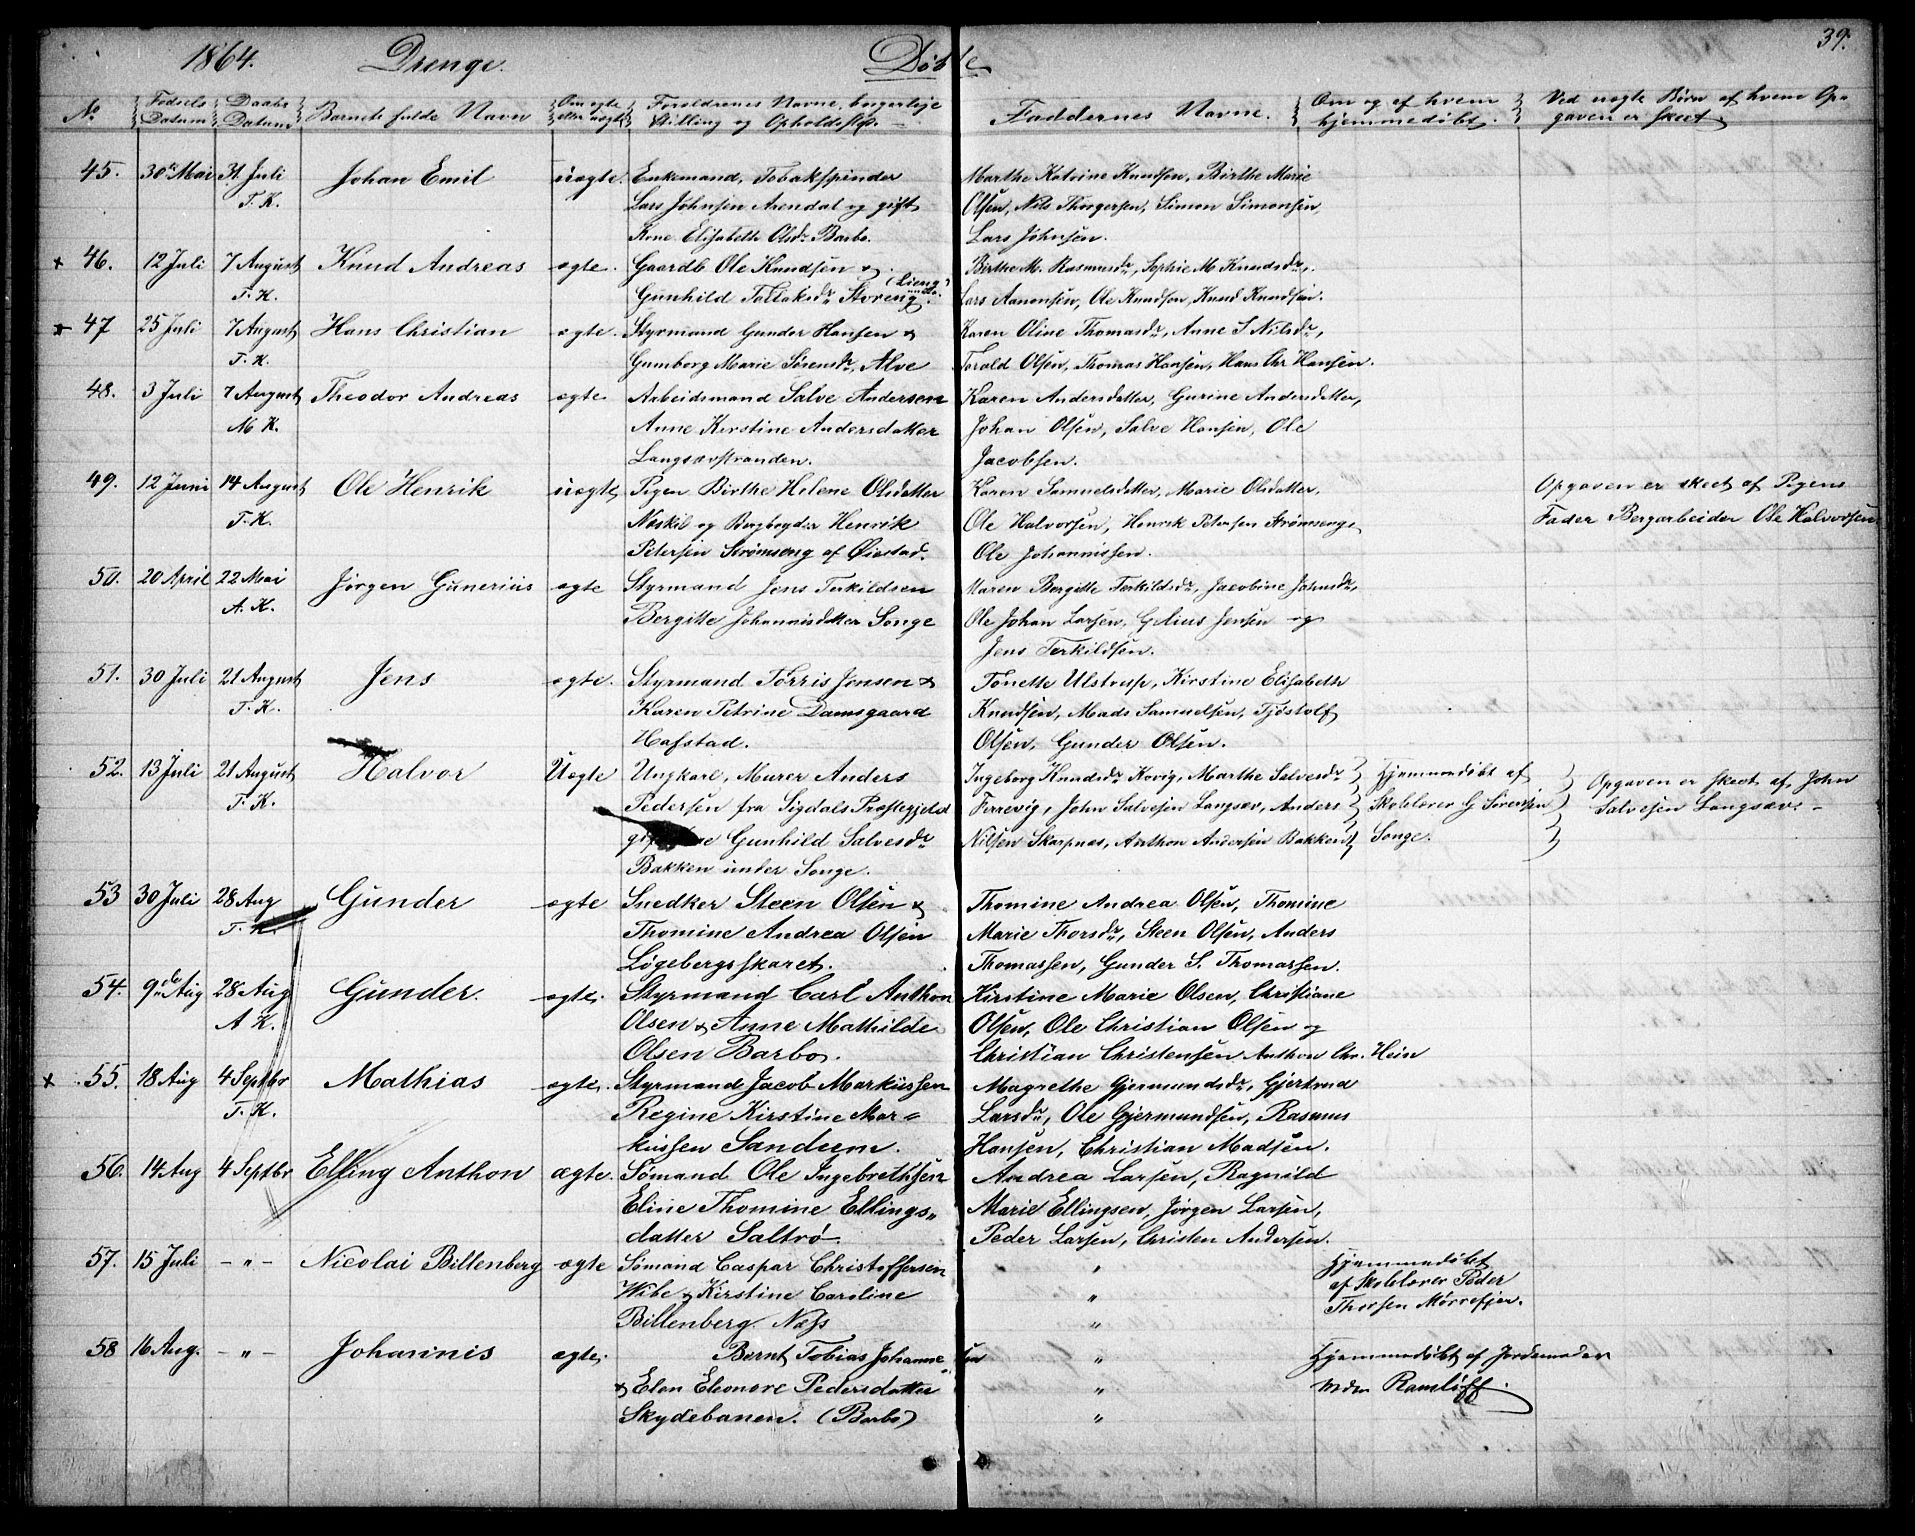 1864. Drenge. Døbte 39.
No Fødsels Datum Daabs Datum Barnets fulde Navn Om ægte eller uægte Forældrenes Navne, borgerlige Stilling og Opholdssted. Faddernes Navne. Om og af hvem hjemmedøbt. Ved uægte Børn af hvem Opgaven er skeet
45. 30te Mai 31 Juli Johan Emil uægte. Enkemand, Tobakspinder Marthe Katrine Knudsen, Birthe Marie
T. K. Lars Johnsen Arendal og gift Olsen, Nils Thorgersen, Simon Simonsen,
Kone Elisabeth Olsdr Barbo. Lars Johnsen.
+ 46. 12 Juli 7 August Knud Andreas ægte. Gaardb Ole Knudsen & Birthe M. Rasmusdr, Sophie M. Knudsdr,
T. K. Gunhild Tallaksdr Storeng. Lars Aanonsen, Ole Knudsen, Knud Knudsen.
+ 47 25 Juli 7 August Hans Christian ægte. Styrmand Gunder Hansen & Karen Oline Thomasdr, Anne S Nilsdr,
T. K. Gumborg Marie Sørensdr, Alve Torald Olsen, Thomas Hansen, Hans Chr Hansen.
48. 3 Juli 7 August Theodor Andreas ægte Arbeidsmand Salve Andersen Karen Andersdatter, Gurine Andersdatter,
M K. Anne Kirstine Andersdatter Johan Olsen, Salve Hansen, Ole
Langsævstranden. Jacobsen.
49. 12 Juni 14 August Ole Henrik uægte Pigen Birthe Helene Olsdatter Karen Samuelsdatter, Marie Olsdatter, Opgaven er skeet af Pigens
T. K. Næskil og Bergbryder Henrik Ole Halvorsen, Henrik Petersen Strømsenge Fader Bergarbeider Ole Halvorsen
Petersen Strømseng af Øiestad. Ole Johannissen.
50. 20 April 22 Mai Jørgen Gunerius ægte Styrmand Jens Terkildsen Maren Bergitte Terkildsdr, Jacobine Johnsdr,
A. K. Bergitte Johannisdatter Songe Ole Johan Larsen, Gelius Jensen og
Jens Terkildsen.
51. 30 Juli 21 August Jens ægte. Styrmand Tørris Jensen & Tonette Ulstrup, Kirstine Elisabeth
T. K. Karen Petrine Damsgaard Knudsen, Mads Samuelsen, Tjøstolf
Hafstad. Olsen, Gunder Olsen.
52. 13 Juli 21 August Halvor Uægte Ungkarl, Murer Anders Ingeborg Knudsdr Kovig, Marthe Salvesdr Hjemmedøbt af Opgaven er skeet af John
T. K. Pedersen fra Sigdals Præstegjeld Ferrevig, John Salvesen Langsæv, Anders Skolelærer G Sørensen Salvesen Langsæv. –
Gunhild Salvesdr Nilsen Skarpnæs, Anthon Andersen Bakken Songe.
Bakken under Songe.
53 30 Juli 28 Aug Gunder ægte Snedker Steen Olsen & Thomine Andrea Olsen, Thomine
T. K. Thomine Andrea Olsen Marie Thorsdr, Steen Olsen, Anders
Løgebergsskaret. Thomassen, Gunder S. Thomassen.
54. 9de Aug 28 Aug Gunder. ægte. Styrmand Carl Anthon Kirstine Marie Olsen, Christiane
A K. Olsen & Anne Mathilde Olsen, Ole Christian Olsen og
Olsen Barbo. Christian Christensen Anthon Chr. Hein
+ 55. 18 Aug 4 Septbr Mathias ægte. Styrmand Jacob Markussen Magrethe Gjermundsdr, Gjertrud
T. K. Regine Kirstine Mar- Larsdr, Ole Gjermundsen, Rasmus
kussen Sandum. Hansen, Christian Madsen.
56. 14 Aug 4 Septbr Elling Anthon ægte. Sømand Ole Ingebrethsen Andrea Larsen, Ragnild
Eline Thomine Ellings„ Marie Ellingsen, Jørgen Larsen,
datter Saltrø. Peder Larsen, Christen Andersen.
57. 15 Juli – „ – Nicolai Billenberg ægte Sømand Caspar Christoffersen „ Hjemmedøbt
Wibe & Kirstine Caroline „ af Skolelærer Peder
Billenberg. Næss „ Thorsen Mørrefjær.
58 16 Aug. – „ – Johannis ægte. Bernt Tobias Johannesen „ Hjemmedøbt af Jordemoder
& Elen Eleonore Pedersdatter „ Ramløff.
Skydebanen. (Barbo) „